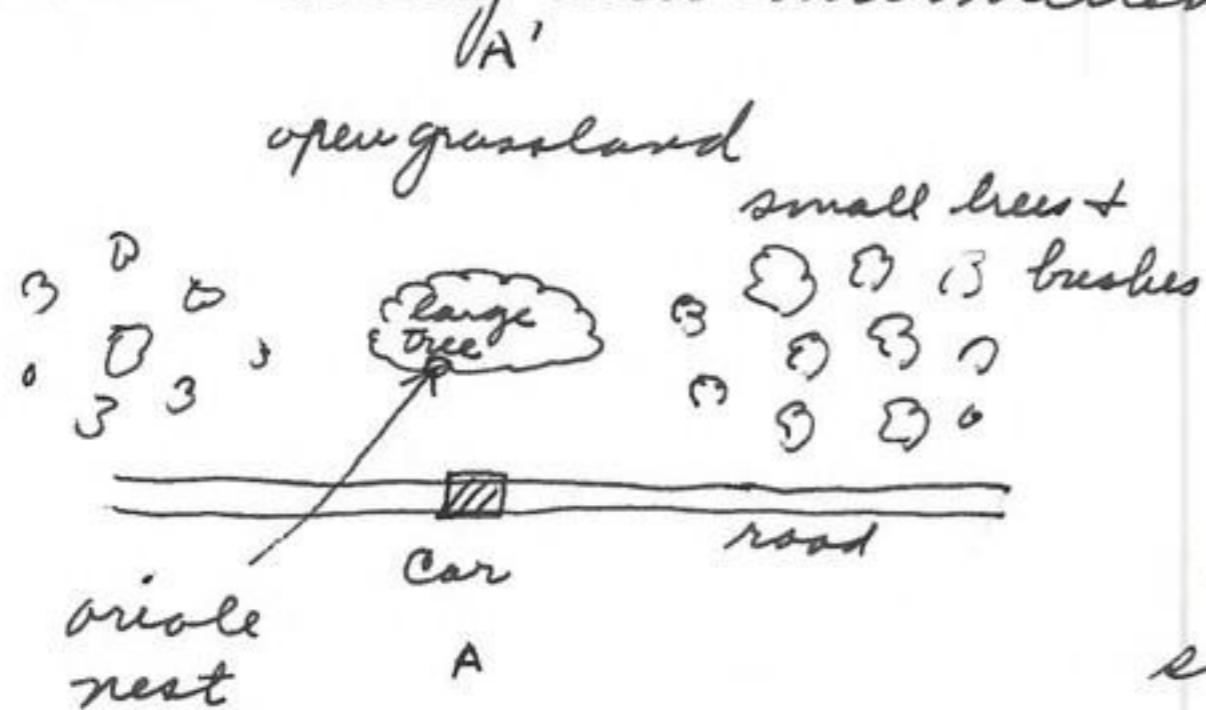 A'
open grassland
small trees +
bushes
large
tree
road
Car
oriole
nest
A